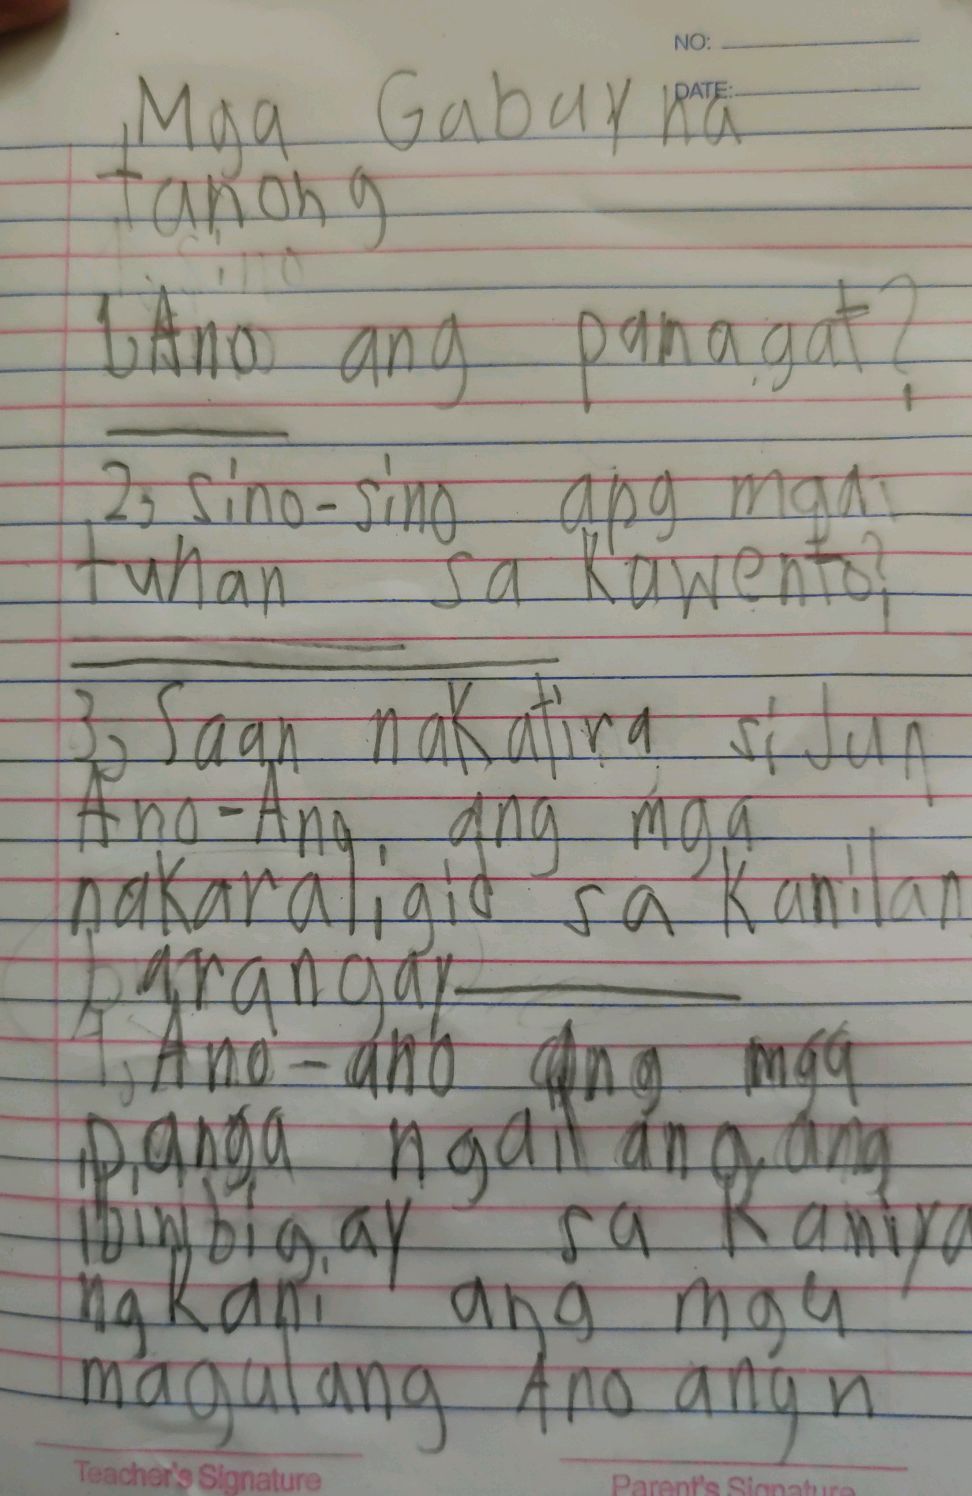 NO:
DATE:
Mga Gabay na
tanong
1. Ano ang panagat?
2, sino-sino ang mga
tuhan sa kawento?
3, Saan nakatira si Jun
Ano-Ang ang mga
nakaraligid sa kanilan
barangay
4, Ano-ano ang mga
panga ngailangang
ibinibigay sa kaniya
ng kani ang mga
magulang Ano ang n
Teacher's Signature
Parent's Signature